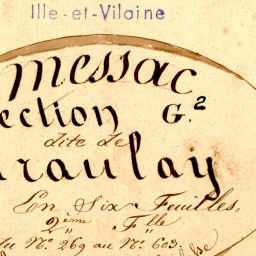 Ille-et-Vilaine
messac
ection G.2
dite de
raulay
En Six Feuilles,
2ème Flle
du No. 269 au No. 603.